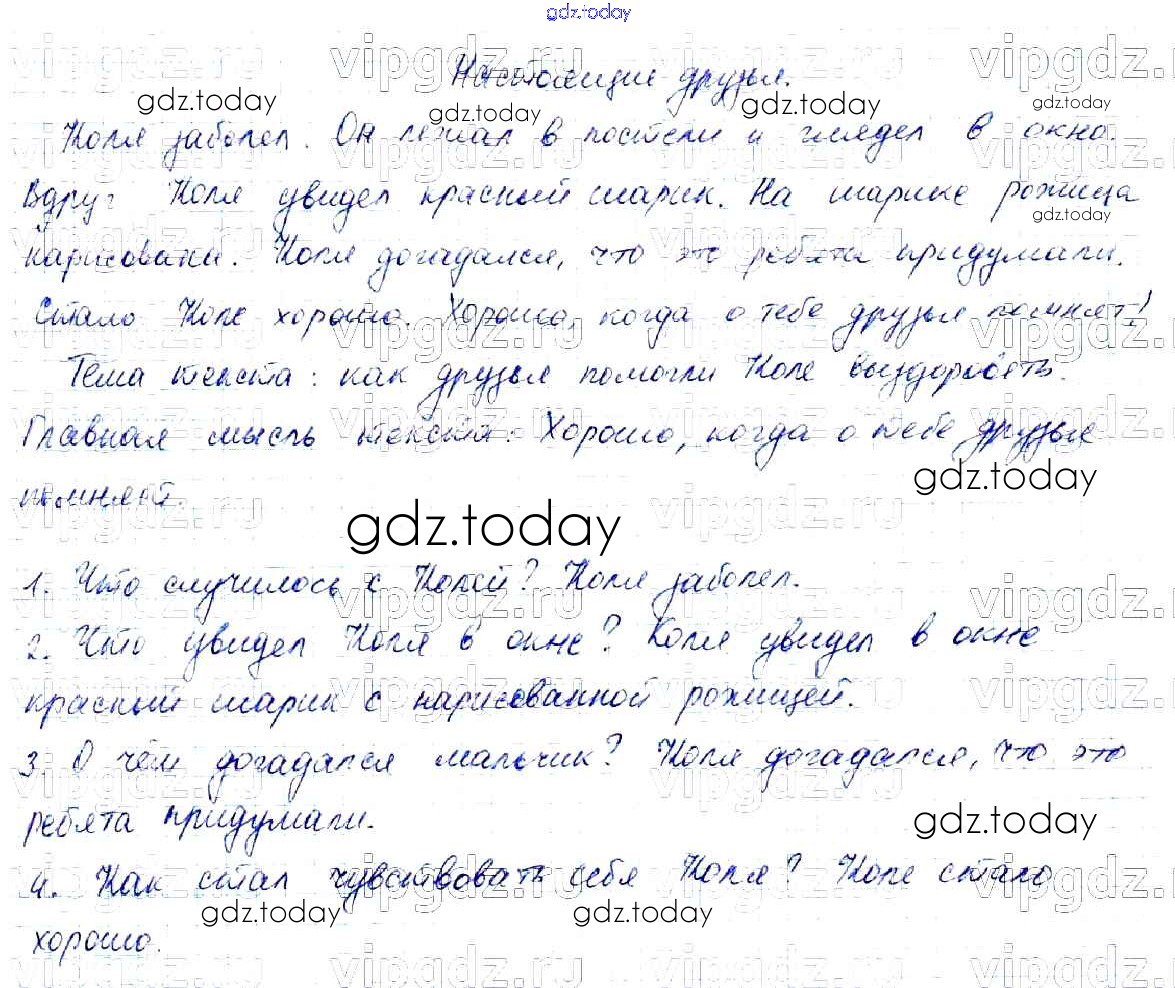 gdz.today
Настоящие друзья.
Коля заболел. Он лежал в постели и глядел в окно.
Вдруг Коля увидел красный шарик. На шарике рожица
нарисована. Коля догадался, что это ребята придумали.
Стало Коле хорошо. Хорошо, когда о тебе друзья помнят!
Тема текста: как друзья помогли Коле выздороветь.
Главная мысль текста: Хорошо, когда о тебе друзья
помнят.
1. Что случилось с Колей? Коля заболел.
2. Что увидел Коля в окне? Коля увидел в окне
красный шарик с нарисованной рожицей.
3. О чём догадался мальчик? Коля догадался, что это
ребята придумали.
4. Как стал чувствовать себя Коля? Коле стало
хорошо.